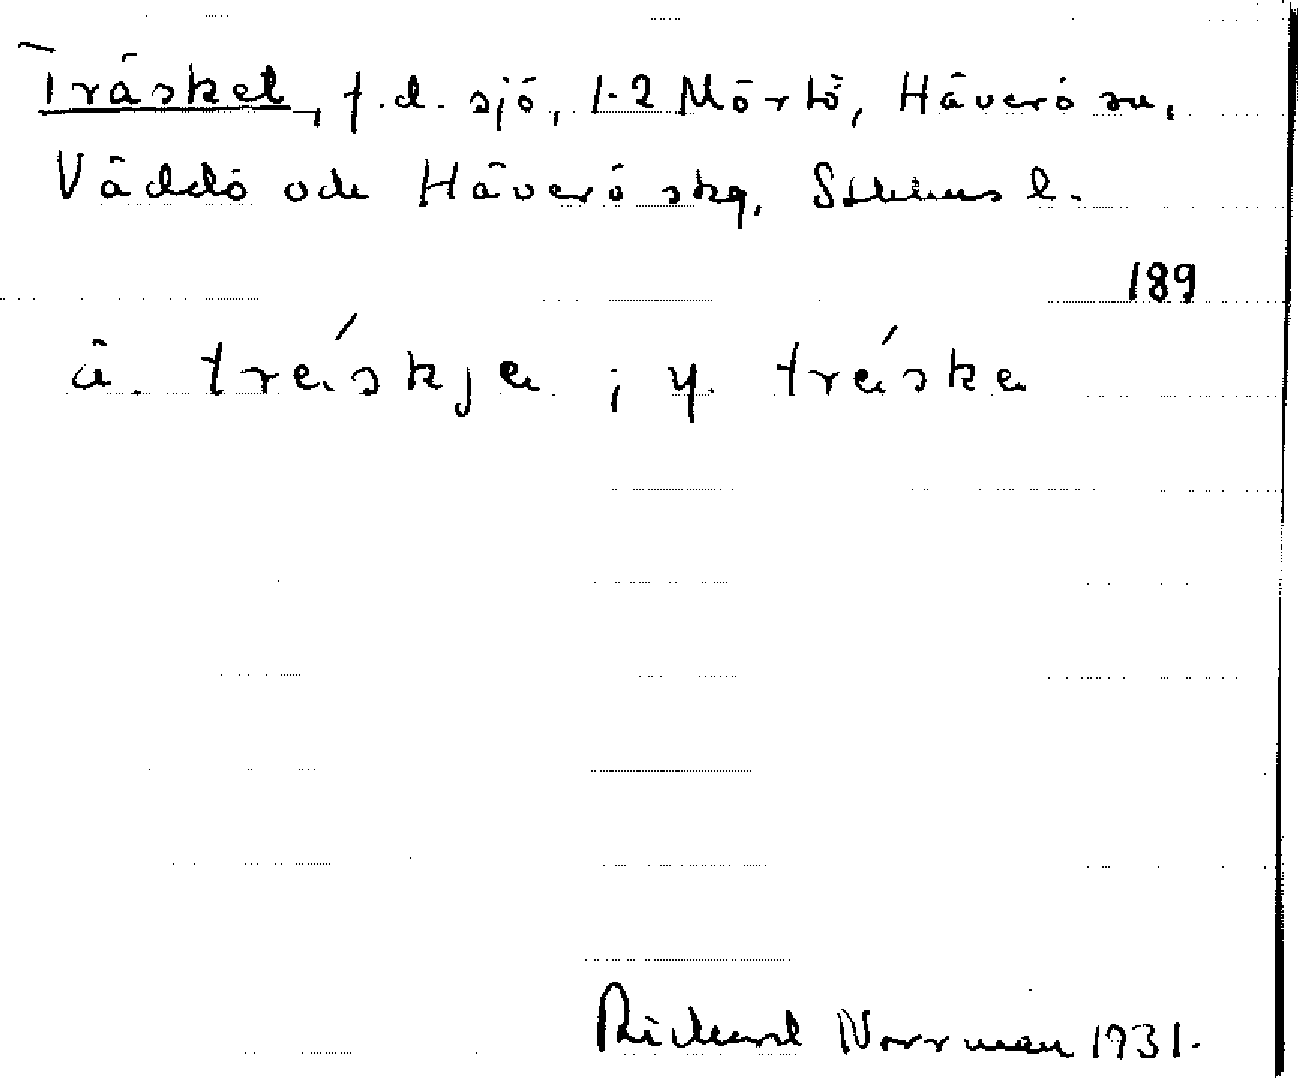 Träsket, f.d. sjö, 1-2 Mörtö, Häverö sn,
Väddö och Häverö skg, Sthlms l.
189
ä. trä́skja ; y. trä́ska
Richard Norrman 1931.